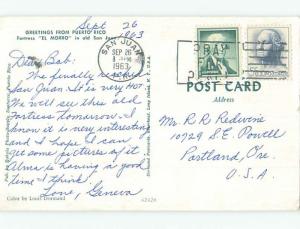 Sept 26
1963
GREETINGS FROM PUERTO RICO
Fortress "EL MORRO" in old San Juan
SAN JUAN
SEP 26
1963
PRAY
POST CARD
Address
Dear Bab:
We finally reached
San Juan. It is very HOT.
We will see this old
fortress tomorrow. I
know it is very interesting
and I hope I can
get some pictures of it
Alma is having a good
time I think.
Love, Geneva
Mrs. R R Redwine
10729 S.E. Powell
Portland, Ore.
U.S.A.
Color by Louis Dormand